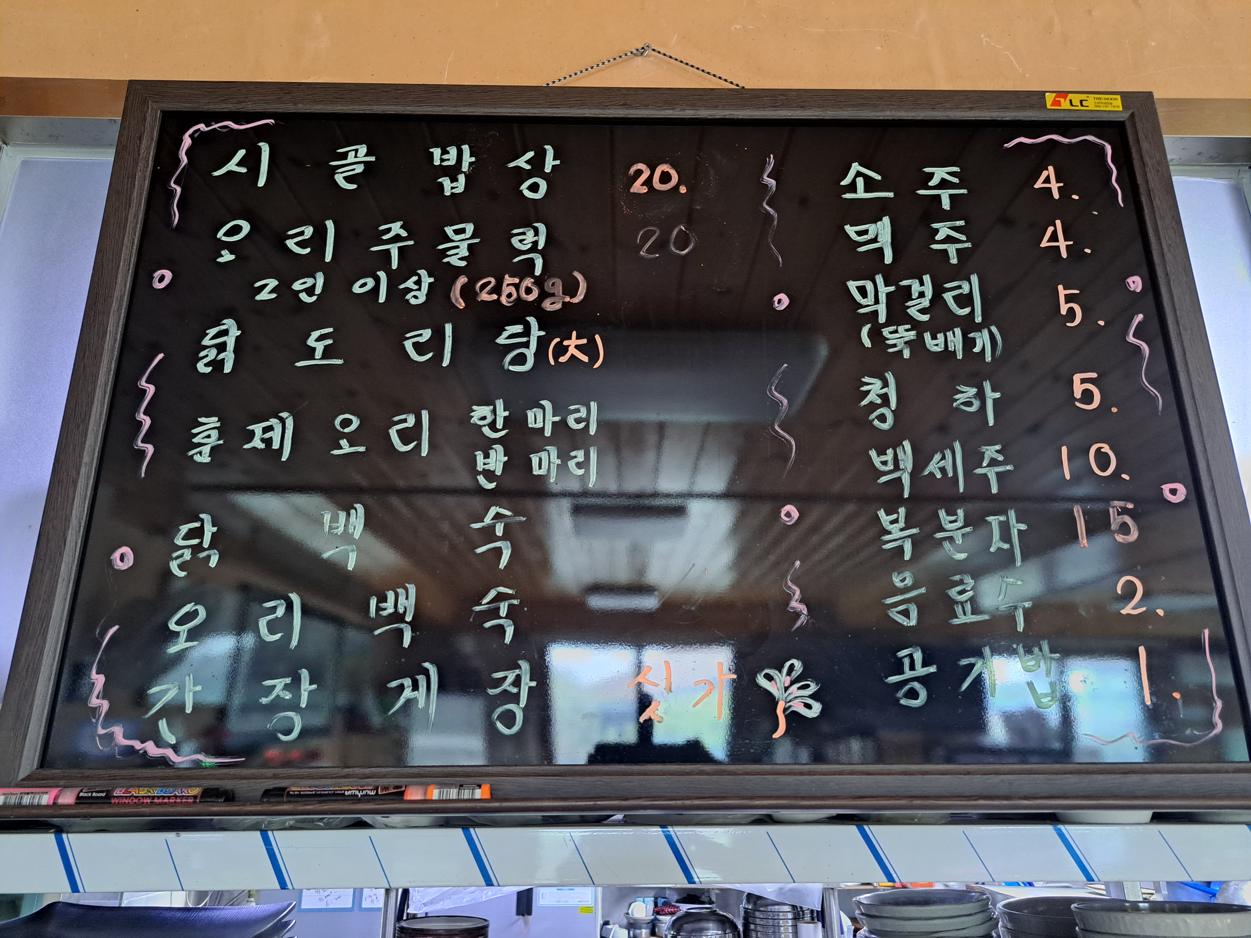 시골밥상 20.
오리주물럭 20
2인 이상 (250g)
닭도리탕 (大)
훈제오리 한마리
반마리
닭백숙
오리백숙
간장게장 시가
소주 4.
맥주 4.
막걸리 5.
(뚝배기)
청하 5.
백세주 10.
복분자 15
음료수 2.
공기밥 1.
TLC
WINDOW MARKER